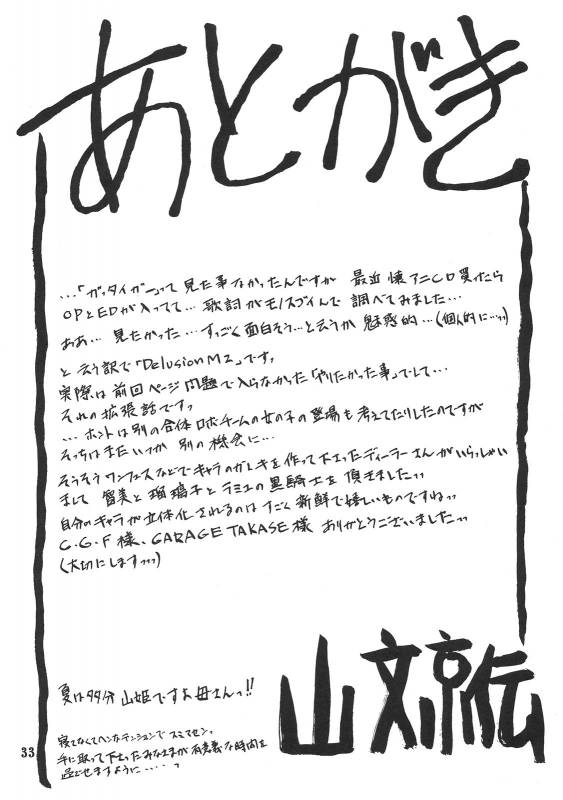 あとがき
…「ガッタイガー」って見た事なかったんですが 最近 懐アニCD買ったら
OPとEDが入ってて… 歌詞がモノスゴイんで 調べてみました…
ああ… 見たかった… すっごく面白そう… と云うか 魅惑的…(個人的に…ッ)
と云う訳で「Delusion M2」です。
実際は前回ページ問題で入らなかった「やりたかった事」でして…
それの拡張話ですッ
…ホントは別の合体ロボチームの女の子の登場も考えてたりしたのですが
そっちはまたいつか 別の機会に…
そうそうワンフェスなどでキャラのガレキを作って下さったディーラーさんがいらっしゃい
まして 智美と瑠璃子とラミュの黒騎士を頂きましたッッ
自分のキャラが立体化されるのはすごく新鮮で嬉しいものですねッッ
C.G.F様、GARAGE TAKASE様 ありがとうございましたッッ
(大切にしますッッッ)
夏は多分 山姫ですよ母さんっ!!
寝てなくてヘンなテンションでスミマセン。
手に取って下さったみなさまが有意義な時間を
過ごせますように……ッ
山文京伝
33